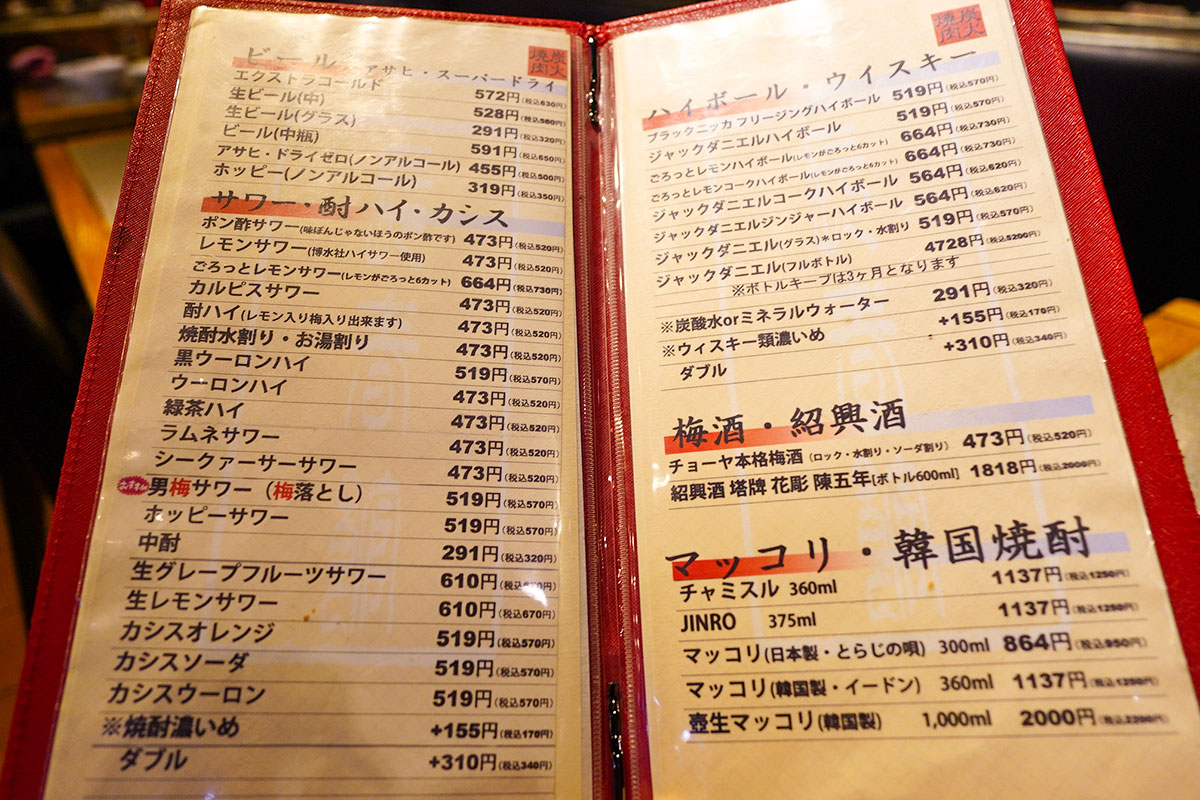 炭火
焼肉
ビール・アサヒ・スーパードライ
エクストラコールド 572円(税込630円)
生ビール(中) 528円(税込580円)
生ビール(グラス) 291円(税込320円)
ビール(中瓶) 591円(税込650円)
アサヒ・ドライゼロ(ノンアルコール) 455円(税込500円)
ホッピー(ノンアルコール) 319円(税込350円)
サワー・酎ハイ・カシス
ポン酢サワー(味ぽんじゃないほうのポン酢です) 473円(税込520円)
レモンサワー(博水社ハイサワー使用) 473円(税込520円)
ごろっとレモンサワー(レモンがごろっと6カット) 664円(税込730円)
カルピスサワー 473円(税込520円)
酎ハイ(レモン入り梅入り出来ます) 473円(税込520円)
焼酎水割り・お湯割り 473円(税込520円)
黒ウーロンハイ 519円(税込570円)
ウーロンハイ 473円(税込520円)
緑茶ハイ 473円(税込520円)
ラムネサワー 473円(税込520円)
シークァーサーサワー 473円(税込520円)
男梅サワー（梅落とし） 519円(税込570円)
ホッピーサワー 519円(税込570円)
中酎 291円(税込320円)
生グレープフルーツサワー 610円(税込670円)
生レモンサワー 610円(税込670円)
カシスオレンジ 519円(税込570円)
カシスソーダ 519円(税込570円)
カシスウーロン 519円(税込570円)
※焼酎濃いめ +155円(税込170円)
ダブル +310円(税込340円)
炭火
焼肉
ハイボール・ウイスキー
ブラックニッカ フリージングハイボール 519円(税込570円)
ジャックダニエルハイボール 519円(税込570円)
ごろっとレモンハイボール(レモンがごろっと6カット) 664円(税込730円)
ごろっとレモンコークハイボール(レモンがごろっと6カット) 664円(税込730円)
ジャックダニエルコークハイボール 564円(税込620円)
ジャックダニエルジンジャーハイボール 564円(税込620円)
ジャックダニエル(グラス)＊ロック・水割り 519円(税込570円)
ジャックダニエル(フルボトル) 4728円(税込5200円)
※ボトルキープは3ヶ月となります
※炭酸水orミネラルウォーター 291円(税込320円)
※ウィスキー類濃いめ +155円(税込170円)
ダブル +310円(税込340円)
梅酒・紹興酒
チョーヤ本格梅酒（ロック・水割り・ソーダ割り） 473円(税込520円)
紹興酒 塔牌 花彫 陳五年[ボトル600ml] 1818円(税込2000円)
マッコリ・韓国焼酎
チャミスル 360ml 1137円(税込1250円)
JINRO 375ml 1137円(税込1250円)
マッコリ(日本製・とらじの唄) 300ml 864円(税込950円)
マッコリ(韓国製・イードン) 360ml 1137円(税込1250円)
壺生マッコリ(韓国製) 1,000ml 2000円(税込2200円)